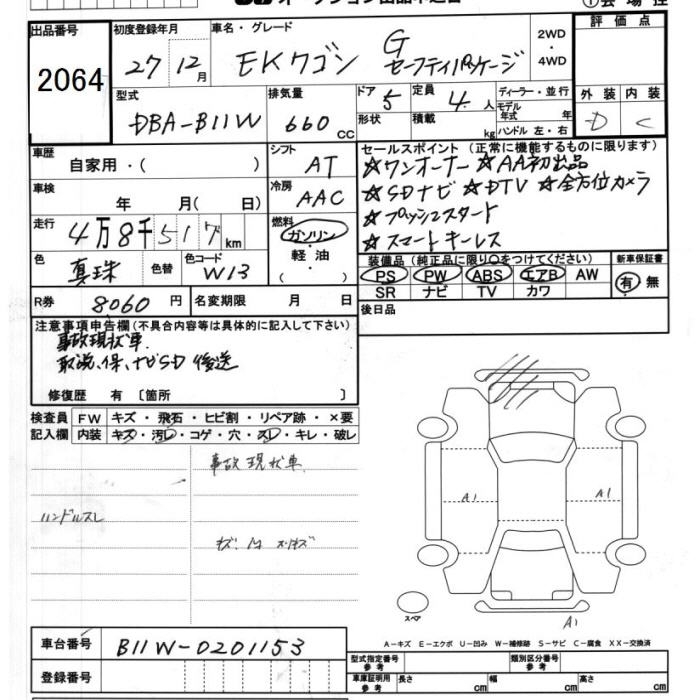 ①会場控
出品番号
2064
初度登録年月
27 12月
車名・グレード
EKワゴン G セーフティパッケージ
2WD
・
4WD
評価点
型式
DBA-B11W
排気量
660cc
ドア 5
形状
定員 4人
積載 kg
ディーラー・並行
モデル年式 年
ハンドル 左・右
外装 内装
D C
車歴
自家用・( )
シフト
AT
車検
年 月( 日)
冷房
AAC
走行
4万8千517km
燃料
ガソリン
・
軽・油
( )
色
真珠
色替
色コード
W13
R券 8060円
名変期限 月 日
セールスポイント(正常に機能するものに限ります)
☆ワンオーナー ☆AA初出品
☆SDナビ ☆DTV ☆全方位カメラ
☆プッシュスタート
☆スマートキーレス
装備品(純正品に限り○をつけてください)
PS PW ABS エアB AW
SR ナビ TV カワ
新車保証書
有・無
後日品
注意事項申告欄(不具合内容等は具体的に記入して下さい)
事故現状車
取説、保、ナビSD 後送
修復歴 有 〔箇所 〕
検査員記入欄
FW キズ・飛石・ヒビ割・リペア跡・×要
内装 キズ・汚レ・コゲ・穴・スレ・キレ・破レ
事故現状車
ハンドルスレ
A1
A1
スペア
A1
A−キズ E−エクボ U−凹み W−補修跡 S−サビ C−腐食 XX−交換済
車台番号
B11W-0201153
登録番号
型式指定番号 参考
類別区分番号 参考
車庫証明用 参考
長さ cm
幅 cm
高さ cm